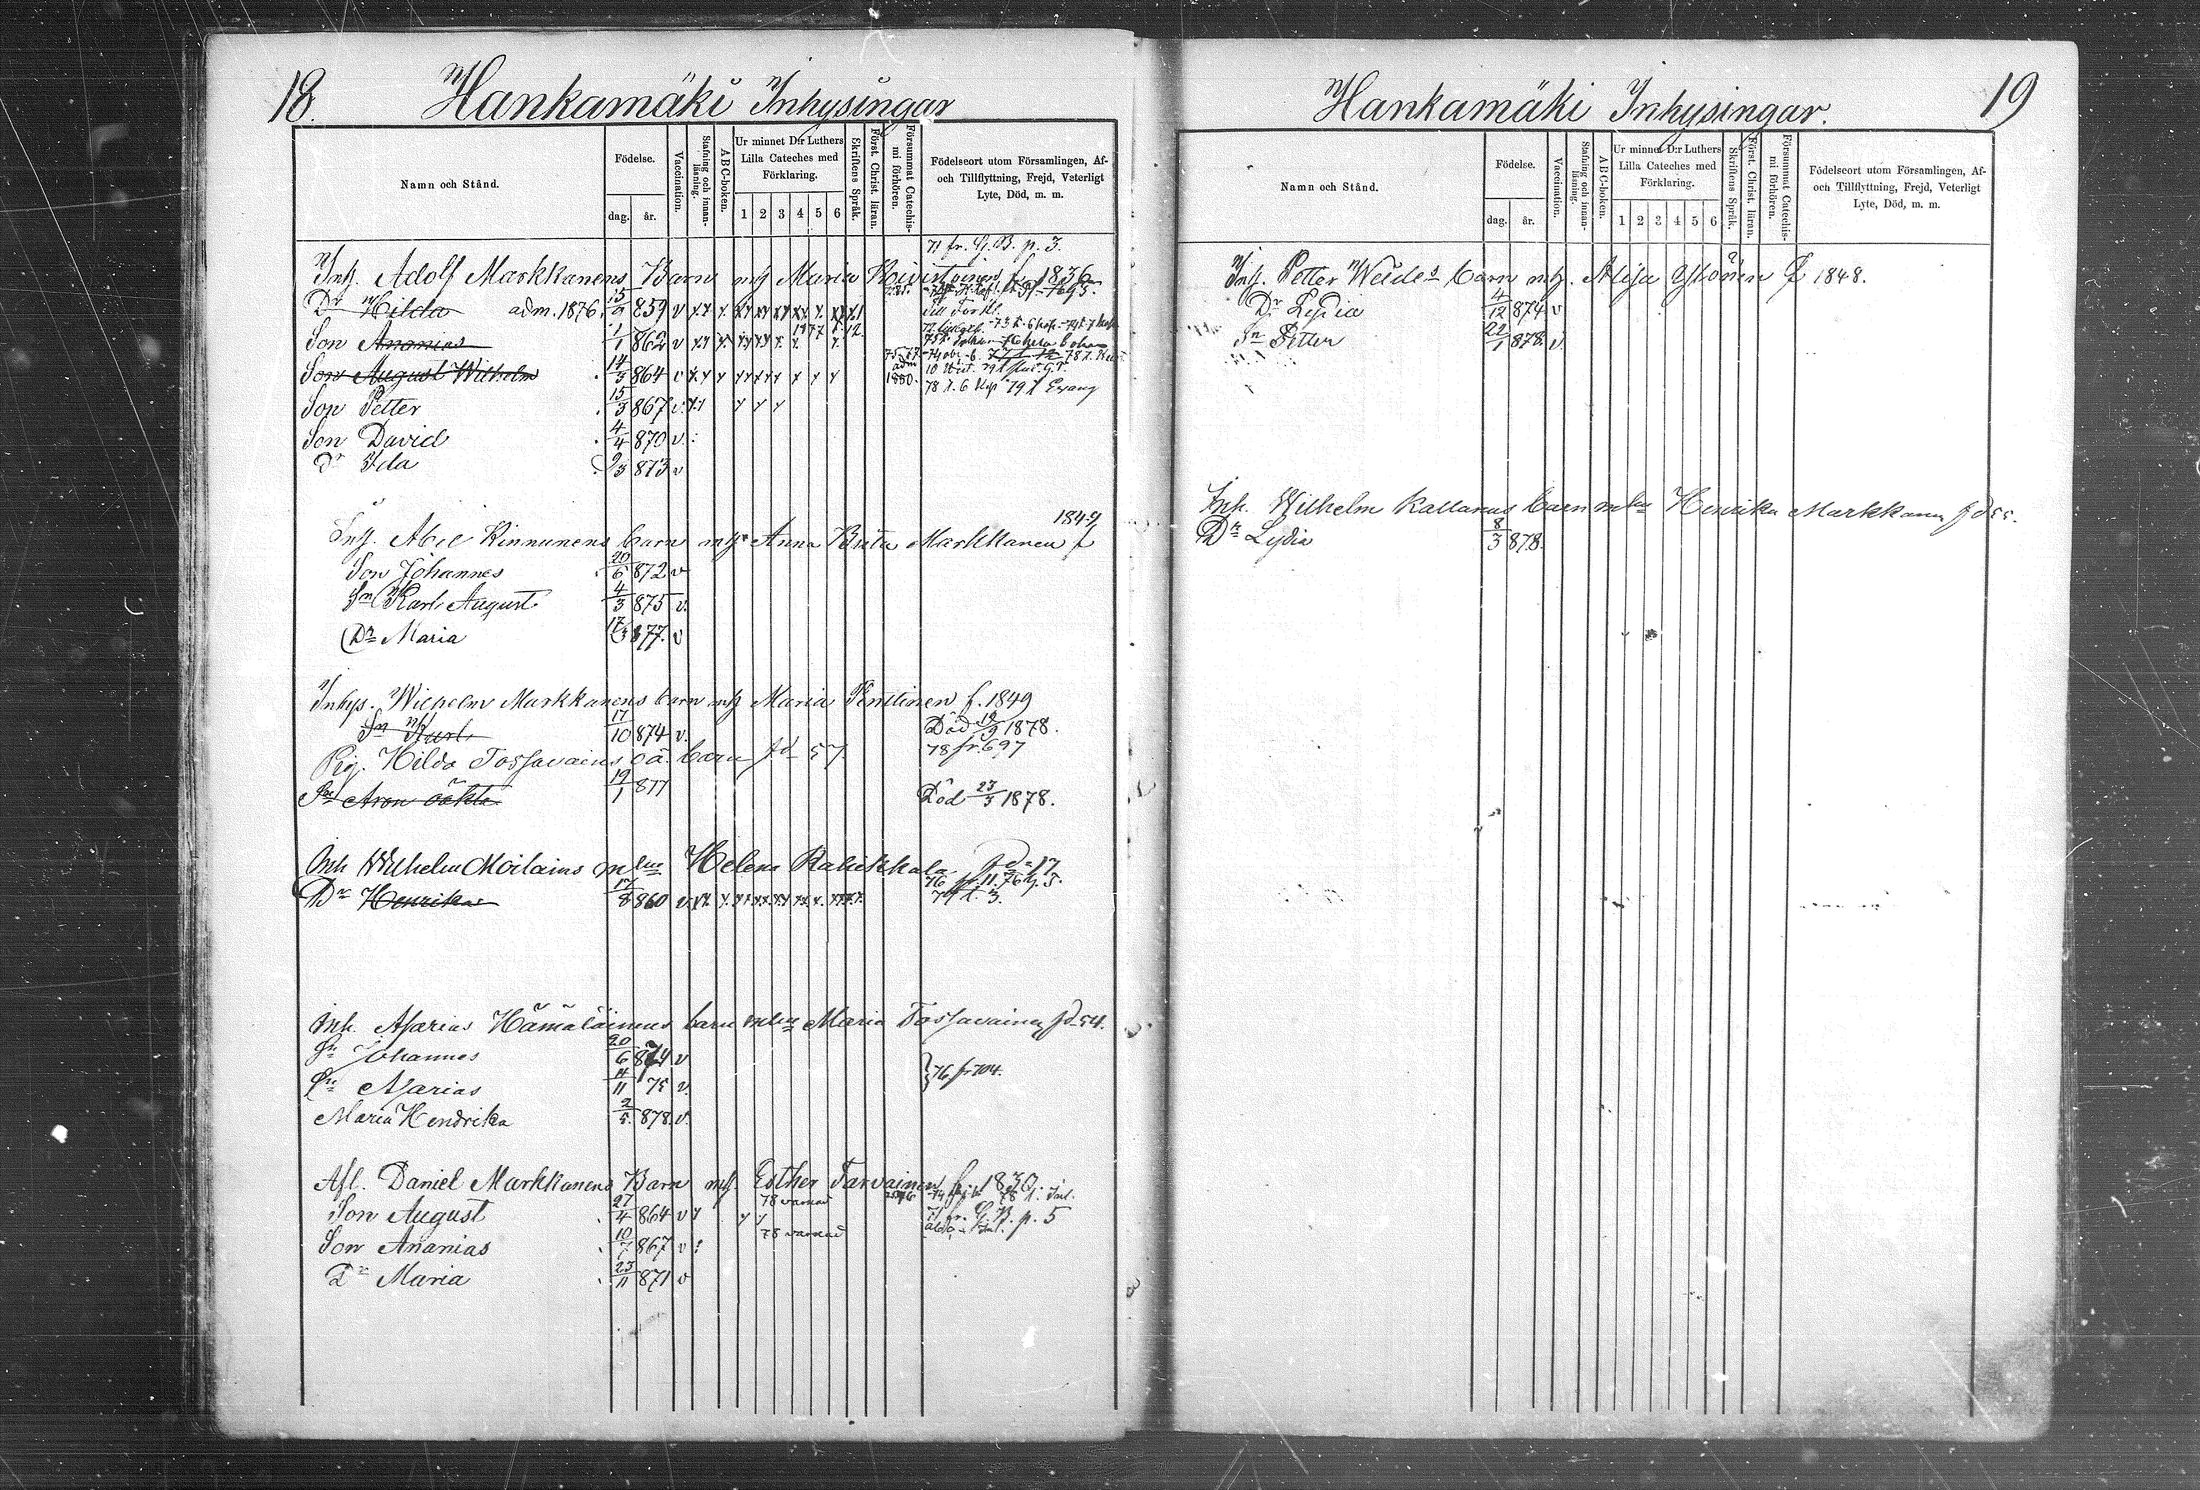 18.
Hankamäki Inhysingar
Namn och Stånd.
Födelse.
dag. år.
Vaccination.
Stafning och innan-läsning.
ABC-boken.
Ur minnet D:r Luthers Lilla Cateches med Förklaring.
1 2 3 4 5 6
Skriftens Språk.
Först. Christ. läran.
Försummat Catechis-mi förhören.
Födelseort utom Församlingen, Af- och Tillflyttning, Frejd, Veterligt Lyte, Död, m. m.
71 fr. G. B. p. 3.
Inh. Adolf Markkanens Barn mh Maria Koivistoinen f. 1836
Dr Hilda adm. 1876. 15/9 859 v
Son Ananias 1/1 862 v 1877
Son August Wilhelm 14/3 864 v adm 1880.
Son Petter 15/3 867 v 78 t. 6
Son David 4/4 870 v.
Dr Ida 9/3 873 v
1849
Inh. Abel Kinnunens barn mh Anna Brita Markkanen f
Son Johannes 20/6 872 v
Sn Karl August 4/3 875 v.
Dr Maria 17/3 877. v
Inhys. Wilhelm Markkanens barn mh Maria Penttinen f. 1849
Sn Karl 17/10 874 v. Död 19/9 1878.
Pig. Hilda Tossavains oä. barn fd 57 78 fr. 697
Sn Aron oäkta 19/1 877 Död 23/3 1878.
Inh Wilhelm Moilains m Helena Rahikkala fd 17
76 fr. 11. 76 g. 5.
Dr Henrika 17/8 860 v. 79 t. 3.
Inh. Asarias Hämäläinens barn Maria Tossavainen fd 54.
Sn Johannes 20/6 874 v
Sn Asarias 14/11 75 v. 76 fr 704.
Maria Hendrika 2/5 878. v.
Afl. Daniel Markkanens Barn mh. Esther Tarvainen f. 1830.
Son August 27/4 864 v 78 varnad 71 fr. G. B. p. 5
Son Ananias 10/7 867 v 78 varnad
Dr Maria 23/11 871 v
19
Hankamäki Inhysingar.
Namn och Stånd.
Födelse.
dag. år.
Vaccination.
Stafning och innan-läsning.
ABC-boken.
Ur minnet D:r Luthers Lilla Cateches med Förklaring.
1 2 3 4 5 6
Skriftens Språk.
Först. Christ. läran.
Försummat Catechis-mi förhören.
Födelseort utom Församlingen, Af- och Tillflyttning, Frejd, Veterligt Lyte, Död, m. m.
Inh. Petter Weides barn mh. f 1848.
Dr Lydia 4/12 874 v
Sn Petter 22/1 878. v.
Inh. Wilhelm Kallanus barn Henrika Markkanen fd 55.
Dr Lydia 8/3 878.